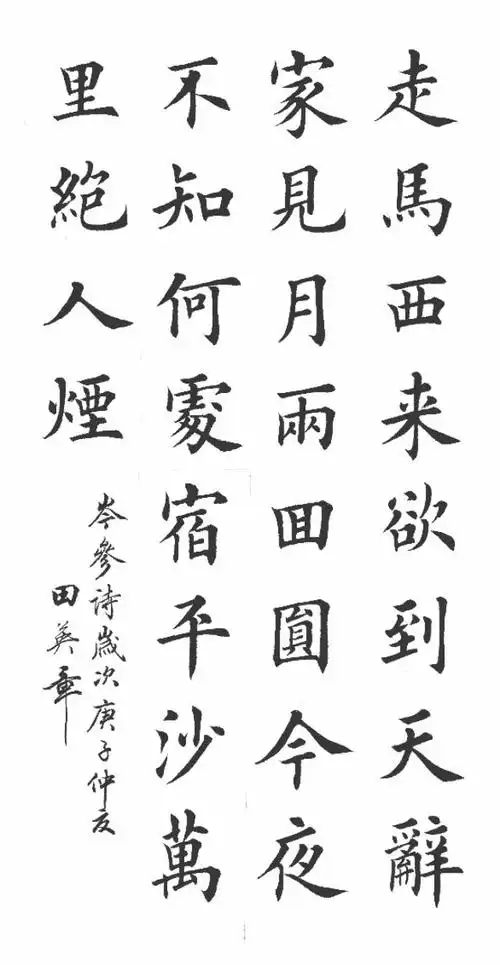 走馬西来欲到天辭
家見月兩囬圓今夜
不知何處宿平沙萬
里絕人煙
岑參诗歲次庚子仲夏
田英章